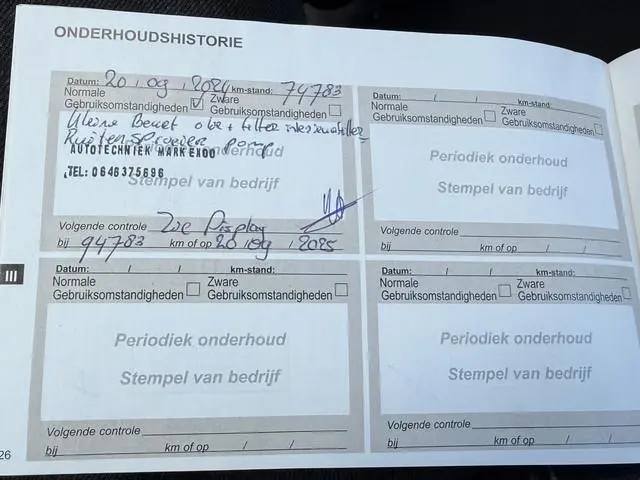 ONDERHOUDSHISTORIE
Datum: 20 / 09 / 2024 km-stand: 74783
Normale Gebruiksomstandigheden ☑ Zware Gebruiksomstandigheden ☐
Kleine Beurt olie + filter interieurfilter
Ruitensproeier pomp
AUTOTECHNIEK MARK ENDO
TEL: 0646375696
Stempel van bedrijf
Volgende controle Zie Display
bij 94783 km of op 20 / 09 / 2025
Datum: / / km-stand:
Normale Gebruiksomstandigheden ☐ Zware Gebruiksomstandigheden ☐
Periodiek onderhoud
Stempel van bedrijf
Volgende controle
bij km of op / /
III
Datum: / / km-stand:
Normale Gebruiksomstandigheden ☐ Zware Gebruiksomstandigheden ☐
Periodiek onderhoud
Stempel van bedrijf
Volgende controle
bij km of op / /
Datum: / / km-stand:
Normale Gebruiksomstandigheden ☐ Zware Gebruiksomstandigheden ☐
Periodiek onderhoud
Stempel van bedrijf
Volgende controle
bij km of op / /
26